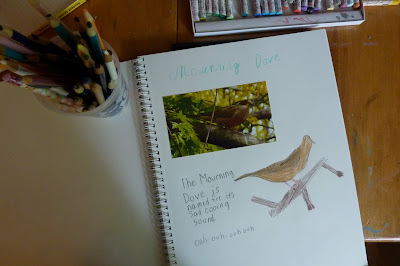 Mourning Dove
The Mourning
Dove is
named for its
sad cooing
sound.
Ooh-ooh-ooh ooh